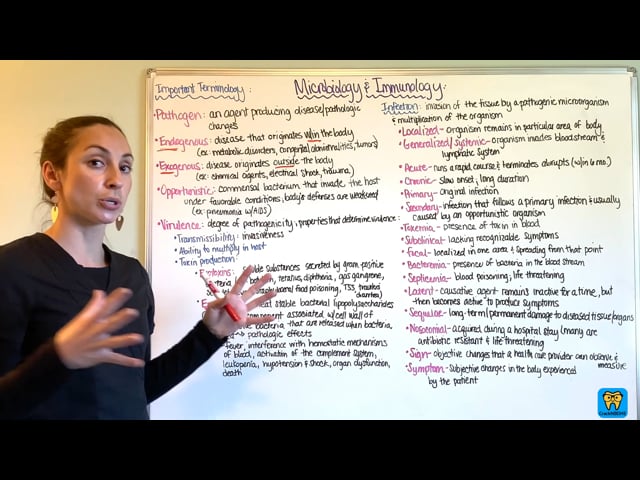 Microbiology & Immunology:
Important Terminology:
• Pathogen: an agent producing disease/pathologic
changes
• Endogenous: disease that originates w/in the body
(ex: metabolic disorders, congenital abnormalities, tumors)
• Exogenous: disease originates outside the body
(ex: chemical agents, electrical shock, trauma)
• Opportunistic: commensal bacterium that invade the host
under favorable conditions, body's defenses are weakened
(ex: pneumonia w/AIDS)
• Virulence: degree of pathogenicity, properties that determine virulence:
• Transmissibility: invasiveness
• Ability to multiply in host
• Toxin production
substances secreted by gram-positive
tetanus, diphtheria, gas gangrene,
food poisoning, TSS,
diarrhea)
heat stable bacterial lipopolysaccharides
component associated w/cell wall of
bacteria, that are released w/in bacteria
pathologic effects
fever, interference with hemostatic mechanisms
of blood, activation of the complement system,
leukopenia, hypotension & shock, organ dysfunction,
death
Infection: invasion of the tissue by a pathogenic microorganism
& multiplication of the organism
• Localized- organism remains in particular area of body
• Generalized/systemic- organism invades bloodstream &
lymphatic system
• Acute- runs a rapid course & terminates abruptly (w/in 6 mo.)
• Chronic- slow onset, long duration
• Primary- original infection
• Secondary- infection that follows a primary infection & usually
caused by an opportunistic organism
• Toxemia- presence of toxin in blood
• Subclinical- lacking recognizable symptoms
• Focal- localized in one area & spreading from that point
• Bacteremia- presence of bacteria in the blood stream
• Septicemia- blood poisoning, life threatening
• Latent- causative agent remains inactive for a time, but
then becomes active to produce symptoms
• Sequelae- long-term/permanent damage to diseased tissue/organs
• Nosocomial- acquired during a hospital stay (many are
antibiotic resistant & life threatening
• Sign- objective changes that a health care provider can observe &
measure
• Symptom- subjective changes in the body experienced
by the patient